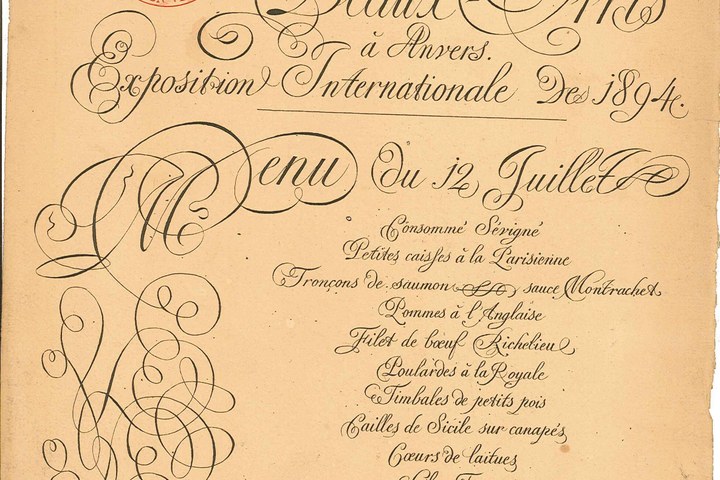 Beaux-Arts
à Anvers.
Exposition Internationale De 1894.
Menu du 12 Juillet
Consommé Sévigné
Petites caisses à la Parisienne
Tronçons de saumon sauce Montrachet
Pommes à l'Anglaise
Filet de bœuf Richelieu
Poulardes à la Royale
Timbales de petits pois
Cailles de Sicile sur canapés
Cœurs de laitues